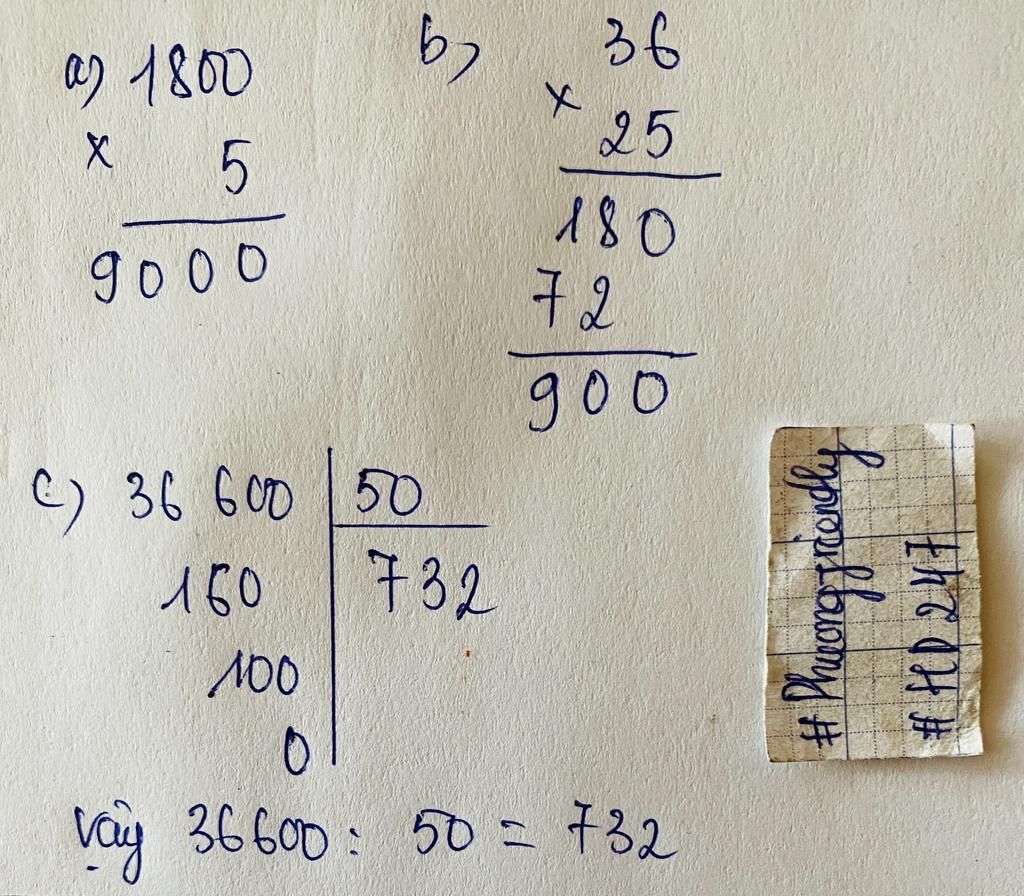 a) 1800
x 5
9000
b) 36
x 25
180
72
900
c) 36 600 50
160 732
100
0
Vậy 36600 : 50 = 732
# Phuongzfriendly
# HD 247